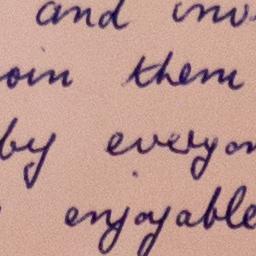 and inv
oin them
by everyon
enjoyable